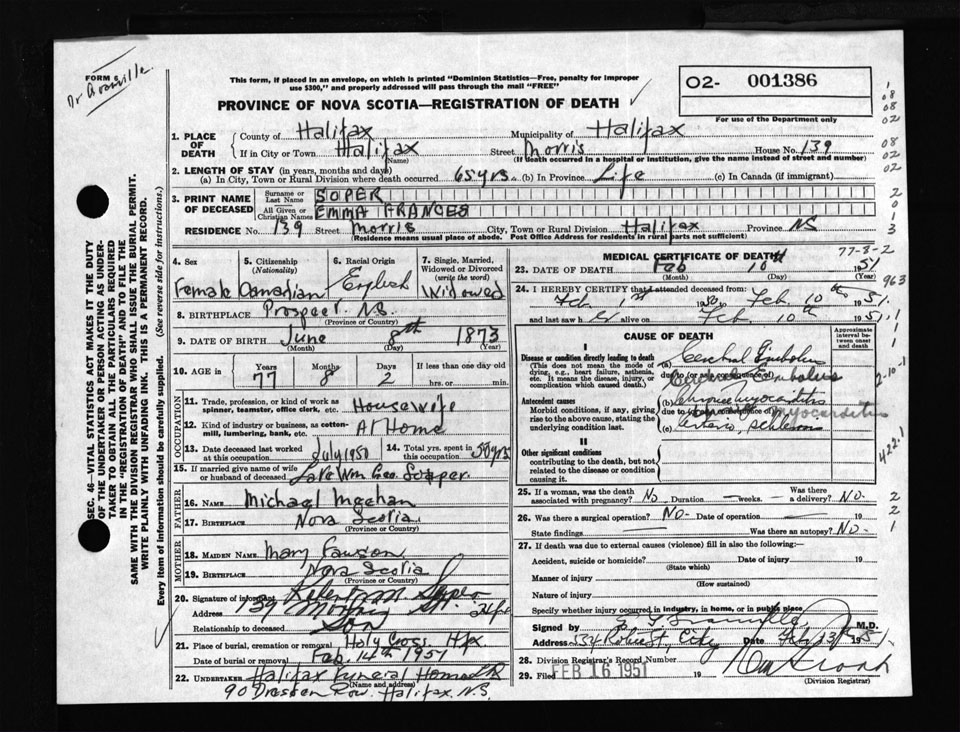 FORM 6
Dr Granville
This form, if placed in an envelope, on which is printed "Dominion Statistics—Free, penalty for improper
use $300," and properly addressed will pass through the mail "FREE"
PROVINCE OF NOVA SCOTIA—REGISTRATION OF DEATH
02- 001386
For use of the Department only
1. PLACE OF DEATH
County of Halifax Municipality of Halifax
If in City or Town Halifax (Name) Street Morris House No. 139
(If death occurred in a hospital or institution, give the name instead of street and number)
2. LENGTH OF STAY (in years, months and days)
(a) In City, Town or Rural Division where death occurred 65 yrs. (b) In Province Life (c) In Canada (if immigrant)
3. PRINT NAME OF DECEASED
Surname or Last Name SOPER
All Given or Christian Names EMMA FRANCES
RESIDENCE No. 139 Street Morris City, Town or Rural Division Halifax Province NS
(Residence means usual place of abode. Post Office Address for residents in rural parts not sufficient)
4. Sex Female
5. Citizenship (Nationality) Canadian
6. Racial Origin English
7. Single, Married, Widowed or Divorced (write the word) Widowed
8. BIRTHPLACE Prospect N.S.
(Province or Country)
9. DATE OF BIRTH June 8th 1873
(Month) (Day) (Year)
10. AGE in Years 77 Months 8 Days 2 If less than one day old hrs. or min.
OCCUPATION
11. Trade, profession, or kind of work as spinner, teamster, office clerk, etc. Housewife
12. Kind of industry or business, as cotton-mill, lumbering, bank, etc. At Home
13. Date deceased last worked at this occupation July 1950 14. Total yrs. spent in this occupation 50 yrs
15. If married give name of wife or husband of deceased Late Wm Geo. Soper
FATHER
16. NAME Michael Meehan
17. BIRTHPLACE Nova Scotia
(Province or Country)
MOTHER
18. MAIDEN NAME Mary
19. BIRTHPLACE Nova Scotia
(Province or Country)
20. Signature of informant Soper
Address 139 Morris St.
Relationship to deceased Son
21. Place of burial, cremation or removal Holy Cross Hfx
Date of burial or removal Feb. 14th 1951
22. UNDERTAKER Halifax Funeral Home
(Name and address)
90 Dresden Row. Halifax, N.S.
MEDICAL CERTIFICATE OF DEATH
77-8-2
23. DATE OF DEATH Feb 10th 1951
(Month) (Day) (Year)
24. I HEREBY CERTIFY that I attended deceased from
Feb 1st 1950 to Feb. 10th 1951.
and last saw h er alive on Feb. 10th 1951
CAUSE OF DEATH
Approximate interval between onset and death
I
Disease or condition directly leading to death
(This does not mean the mode of dying, e.g., heart failure, asthenia, etc. It means the disease, injury, or complication which caused death.)
(a) Cerebral Embolus
due to (or as a consequence of)
Cerebral Embolus
Antecedent causes
Morbid conditions, if any, giving rise to the above cause, stating the underlying condition last.
(b) chronic myocarditis
due to Myocarditis
(c) arterio sclerosis
II
Other significant conditions
contributing to the death, but not related to the disease or condition causing it.
25. If a woman, was the death associated with pregnancy? No. Duration — weeks. — Was there a delivery? No.
26. Was there a surgical operation? No- Date of operation —
State findings Was there an autopsy? No-
27. If death was due to external causes (violence) fill in also the following:—
Accident, suicide or homicide? Date of injury 19
(State which)
Manner of injury
(How sustained)
Nature of injury
Specify whether injury occurred in industry, in home, or in public place
Signed by Granville, M.D.
Address 334 Robie St, City Date Feb 13 1951
28. Division Registrar's Record Number
29. Filed FEB 16 1951 19
(Division Registrar)
SEC. 46—VITAL STATISTICS ACT MAKES IT THE DUTY
OF THE UNDERTAKER OR PERSON ACTING AS UNDER-
TAKER TO OBTAIN ALL THE PARTICULARS REQUIRED
IN THE "REGISTRATION OF DEATH" AND TO FILE THE
SAME WITH THE DIVISION REGISTRAR WHO SHALL ISSUE THE BURIAL PERMIT.
WRITE PLAINLY WITH UNFADING INK. THIS IS A PERMANENT RECORD.
Every item of information should be carefully supplied. (See reverse side for instructions.)
1
08
08
02
08
02
02
2
0
1
3
963
1
1
1
2-10-1
422.1
2
2
1